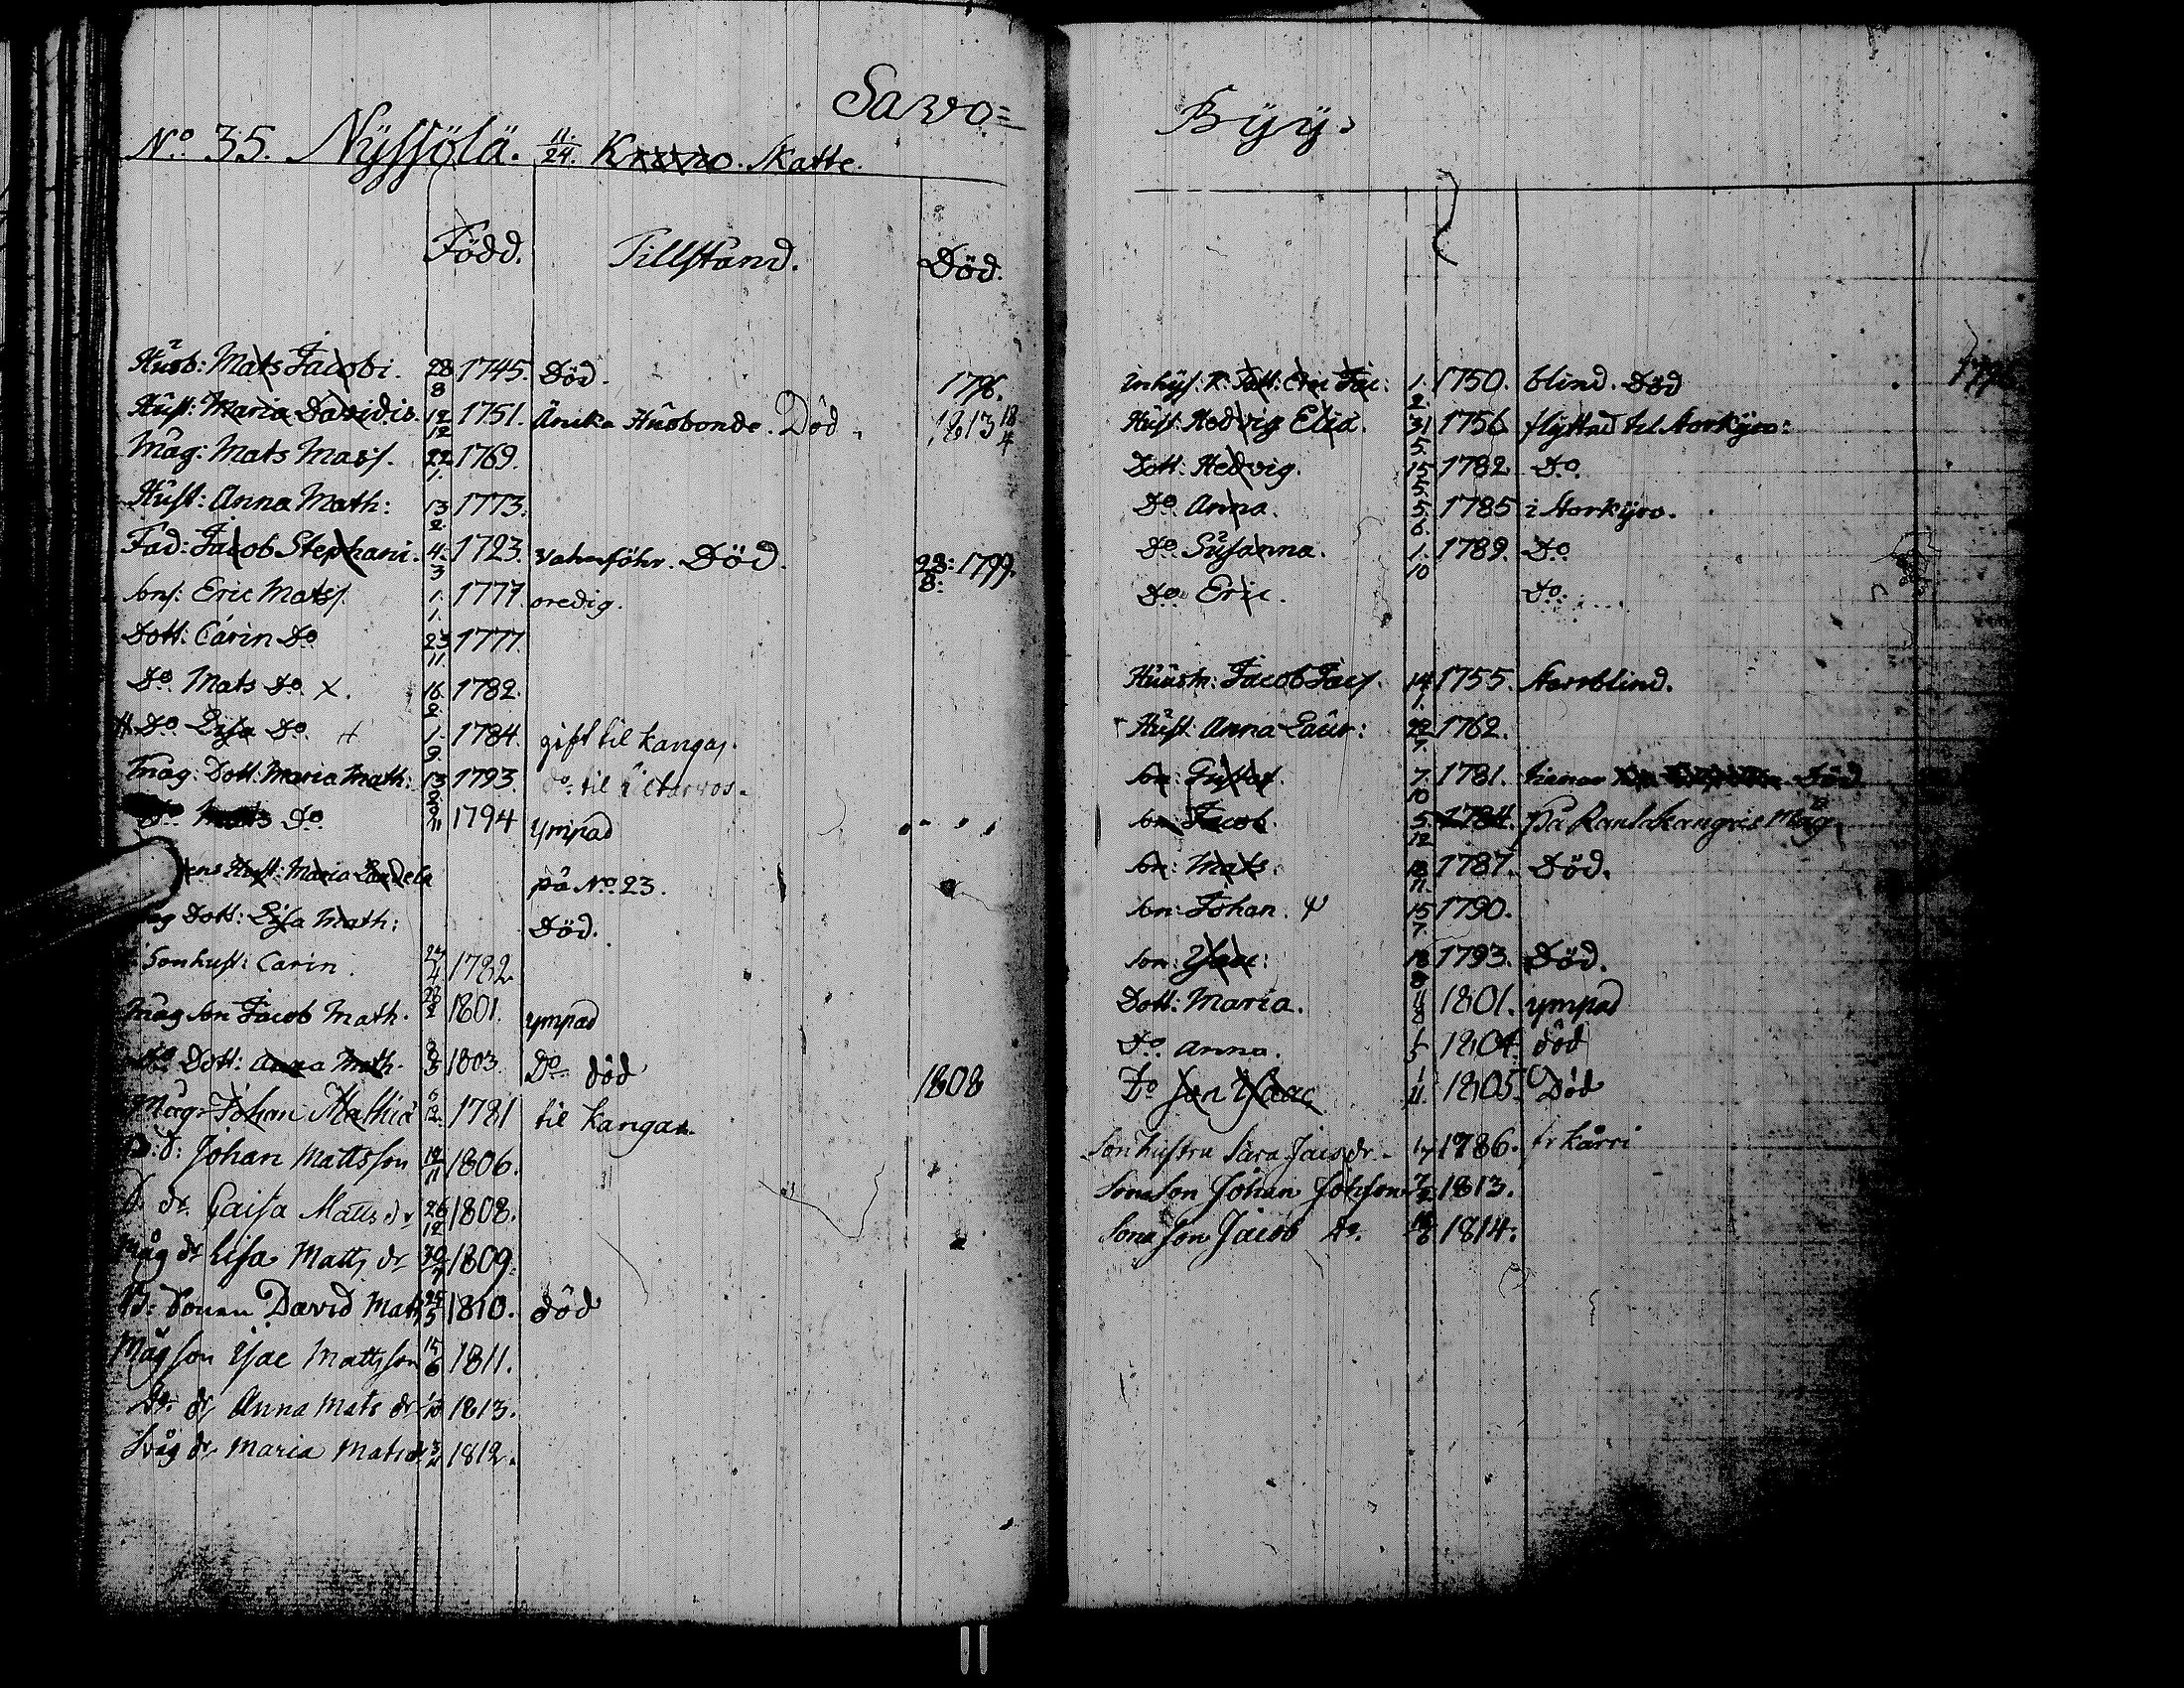 Savo=
No 35. Nyssölä. 11/24. Krono. Skatte.
Född. Tillstånd. Död.
Husb: Mats Jacobi. 28/8 1745. Död. 1796.
Hust: Maria Davidis. 12/12 1751. Änka Husbonde. Död. 1813 18/4
Måg: Mats Mass. 22/1. 1769.
Hust: Anna Math: 13/2. 1773.
Fad: Jacob Stephani. 4./3 1723. Död. 23:/8: 1799.
Sons: Eric Matss. 1./1. 1777. oredig.
Dott: Carin Do 23/11. 1777.
Do Mats Do X. 16/2. 1782.
Do Lisa Do. 1./9. 1784. gift til Kangas.
Måg: Dott: Maria Math: 13/2. 1793. Do til
Do Mats Do. 1794 ympad
Hust: Maria på No 23.
Dott: Lisa Math: Död.
Sonhust: Carin. 27/4 1782
Måg son Jacob Math. 1801. ympad
Do Dott: Anna Math. 1803. Do död 1808
Måg Johan Mathia 1781 til Kangas.
D: d: Johan Mattsson 12/11 1806.
D dr Caisa Matts dr 26/12 1808.
Måg dr Lisa Matts dr 30/7 1809.
D: Sonen David Mats 25/5 1810. död
Måg son Isac Mattsson 15/6 1811.
Do dr Anna Mats dr 1/10 1813.
Svåg dr Maria Mats dr 1812.
Byy.
Inhys: Eric Jac: 1./2. 1750. blind. Död 1796
Hust: Hedvig Elia. 31/5. 1756 flyttad til Storkyro:
Dott: Hedvig. 15/5. 1782 Do
Do Anna. 5./6. 1785 i Storkyro.
Do Susanna. 1./10 1789. Do
Do Eric. Do
Jacob Jacs. 14/1. 1755. Starrblind.
Hust: Anna Laur: 22/7. 1762.
Son: Gustaf. 7./10 1781. Död
Son Jacob. 5./12 1784. på Rantakangas Måg
Son: Mats. 18/11. 1787. Död.
Son: Johan. 15/7. 1790.
Son: Isaac: 18/8 1793. Död.
Dott: Maria. 1801. ympad
Do Anna. 1804. död
Do Son Isaac 1/11. 1805. Död
Sonhustru Sara Jacs dr. 1/7 1786. fr Kårri
Sons Son Johan Johsson 7/2 1813.
Sons son Jacob Do. 1814.